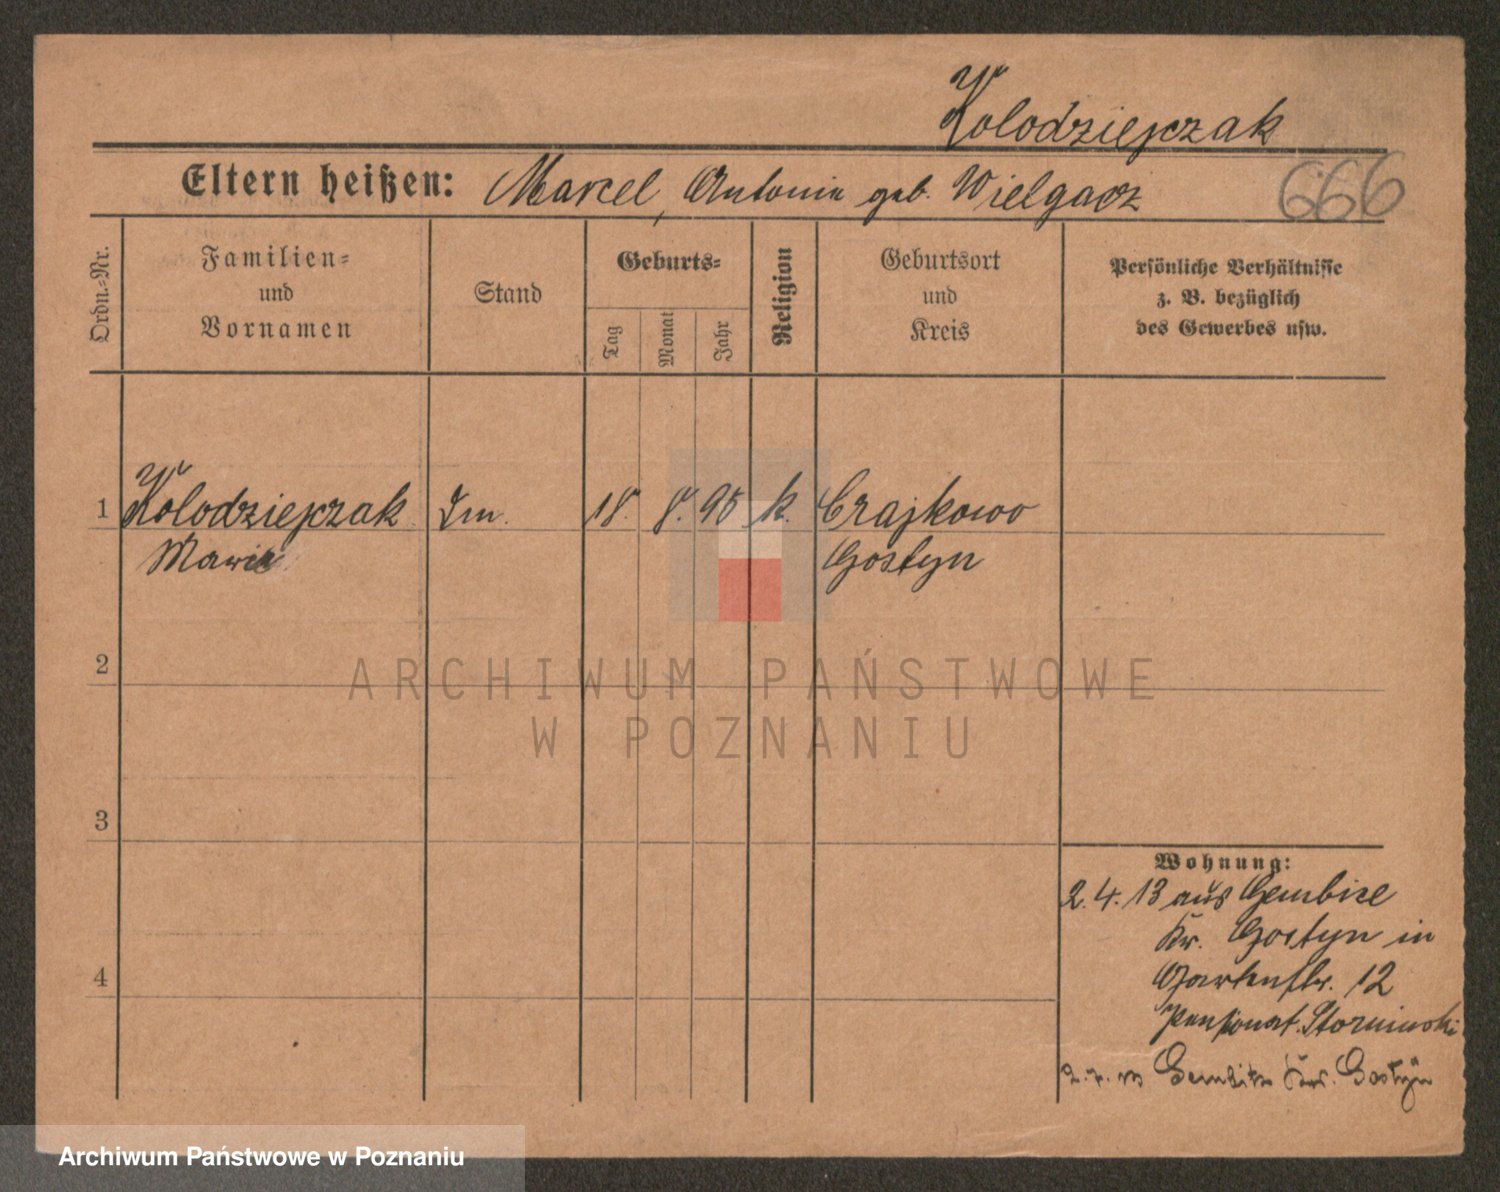 Kolodziejczak
Eltern heißen: Marcel, Antonie geb. Wielgacz
666
Ordn.-Nr.
Familien-
und
Vornamen
Stand
Geburts-
Tag
Monat
Jahr
Religion
Geburtsort
und
Kreis
Persönliche Verhältnisse
z. B. bezüglich
des Gewerbes usw.
1 Kolodziejczak 18. 8. 95 k. Czajkowo
Marie Gostyn
2
ARCHIWUM PAŃSTWOWE
W POZNANIU
3
4
Wohnung:
2.4.13 aus Gembice
Kr. Gostyn in
Gartenstr. 12
Pensionat
Gembitz Kr. Gostyn
Archiwum Państwowe w Poznaniu